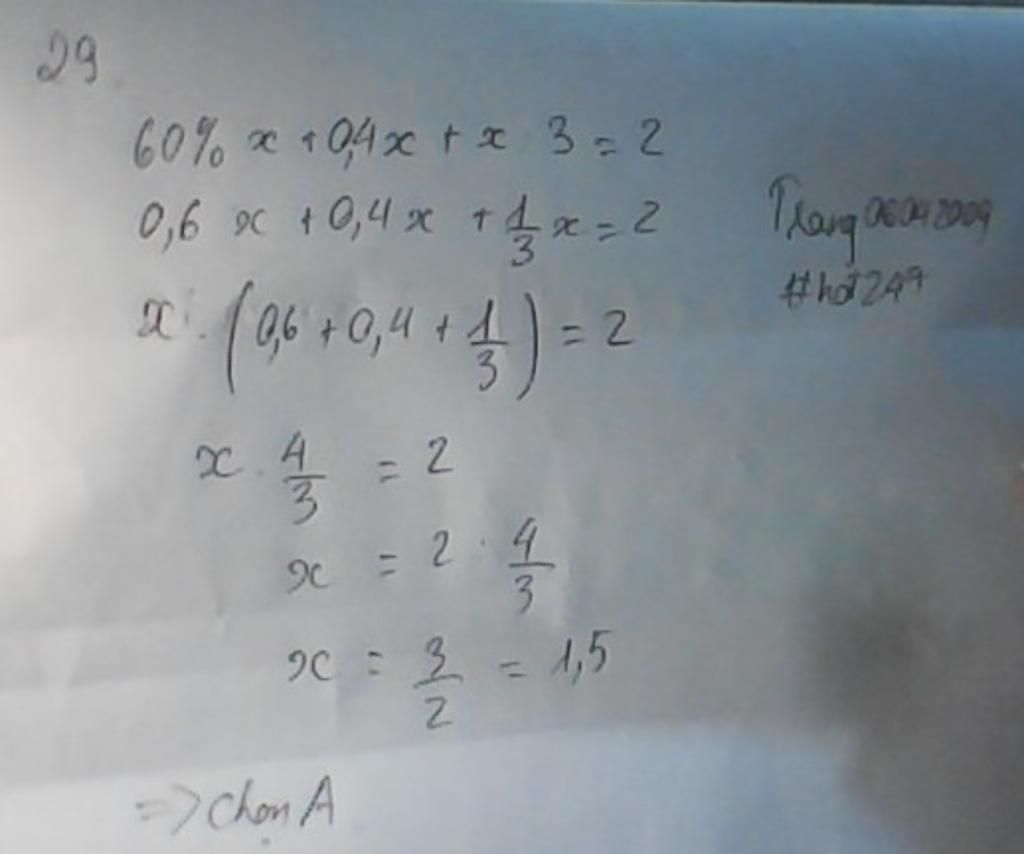 29
60% x + 0,4x + x 3 = 2
0,6 x + 0,4x + 1/3 x = 2
x . (0,6 + 0,4 + 1/3) = 2
x . 4/3 = 2
x = 2 . 4/3
x = 3/2 = 1,5
=> Chọn A
Trang06042009
#hoi247